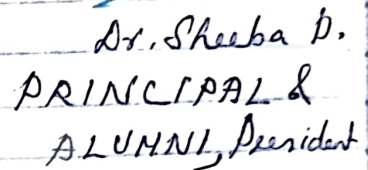 Dr. Sheeba D.
PRINCIPAL &
ALUMNI, President